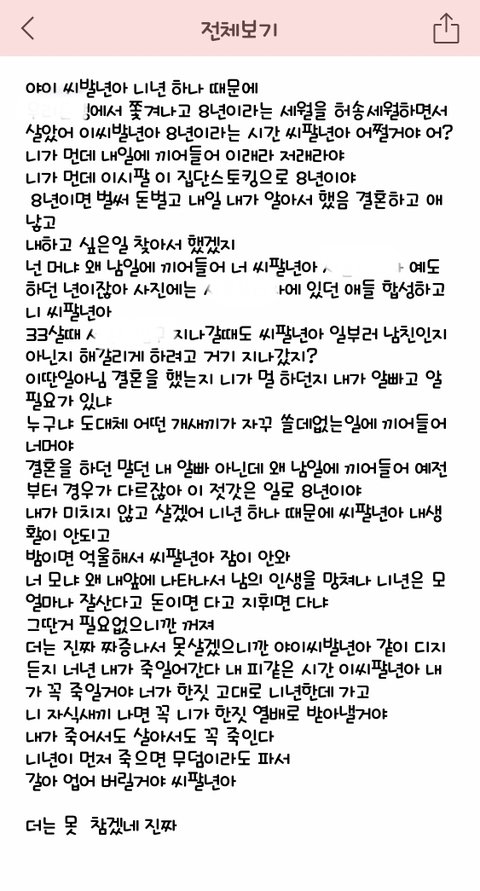 전체보기
야이 씨발년아 니년 하나 때문에
에서 쫓겨나고 8년이라는 세월을 허송세월하면서
살았어 이씨발년아 8년이라는 시간 씨팔년아 어쩔거야 어?
니가 먼데 내일에 끼어들어 이래라 저래라야
니가 먼데 이시팔 이 집단스토킹으로 8년이야
8년이면 벌써 돈벌고 내일 내가 알아서 했음 결혼하고 애
낳고
내하고 싶은일 찾아서 했겠지
넌 머냐 왜 남일에 끼어들어 너 씨팔년아 예도
하던 년이잖아 사진에는 에 있던 애들 합성하고
니 씨팔년아
33살때 지나갈때도 씨팔년아 일부러 남친인지
아닌지 해갈리게 하려고 거기 지나갔지?
이딴일아님 결혼을 했는지 니가 멀 하던지 내가 알빠고 알
필요가 있냐
누구냐 도대체 어떤 개새끼가 자꾸 쓸데없는일에 끼어들어
너머야
결혼을 하던 말던 내 알빠 아닌데 왜 남일에 끼어들어 예전
부터 경우가 다르잖아 이 젓갓은 일로 8년이야
내가 미치지 않고 살겠어 니년 하나 때문에 씨팔년아 내생
활이 안되고
밤이면 억울해서 씨팔년아 잠이 안와
너 모냐 왜 내앞에 나타나서 남의 인생을 망쳐나 니년은 모
얼마나 잘산다고 돈이면 다고 지휘면 다냐
그딴거 필요없으니깐 꺼져
더는 진짜 짜증나서 못살겠으니깐 야이씨발년아 같이 디지
든지 너년 내가 죽일어간다 내 피같은 시간 이씨팔년아 내
가 꼭 죽일거야 너가 한짓 고대로 니년한데 가고
니 자식새끼 나면 꼭 니가 한짓 열배로 받아낼거야
내가 죽어서도 살아서도 꼭 죽인다
니년이 먼저 죽으면 무덤이라도 파서
갈아 업어 버릴거야 씨팔년아
더는 못 참겠네 진짜